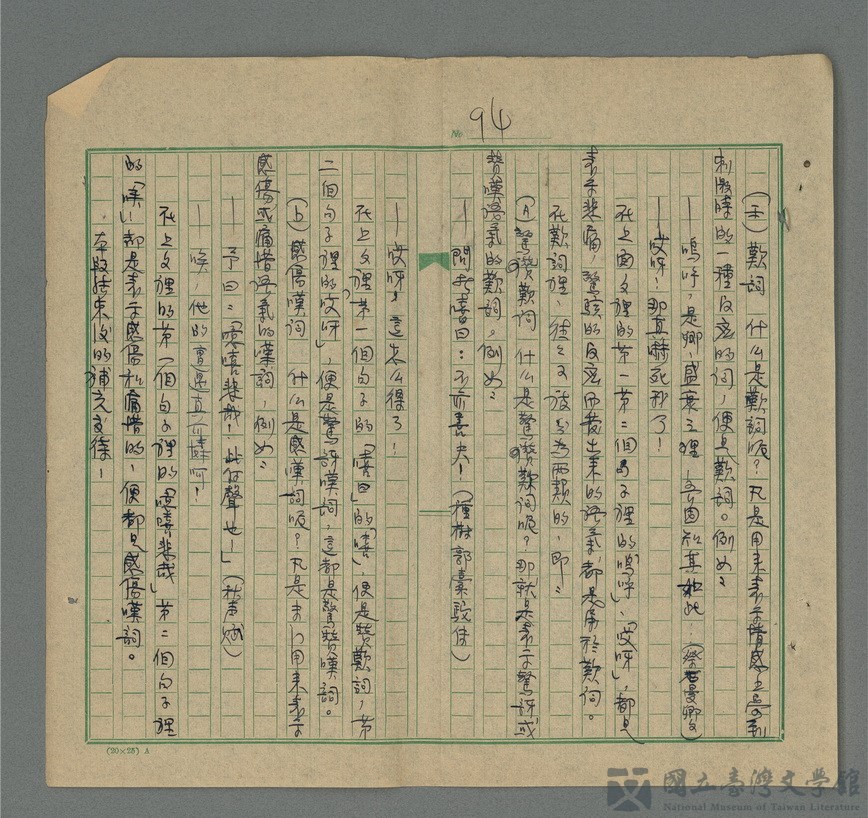 No 94
(五)歎詞 什么是歎詞呢?凡是用來表示情感上受到
刺激時的一種反应的詞,便是歎詞。例如:
—嗚呼,是卿,盛衰之理,吾固知其如此…(祭石曼卿文)
—哎呀!那真嚇死我了!
在上面文裡的第一第二個句子裡的「嗚呼」、「哎呀」,都是
表示悲痛,驚駭的反应而發出來的語氣,都是屬於歎詞。
在歎詞裡,往往又被分為兩類的,即:
(A)驚讚歎詞 什么是驚讚歎詞呢?那就是表示驚訝或
贊嘆語氣的歎詞。例如:
—問者嘻曰:不亦善夫!(種樹郭橐駝傳)
—哎呀,這怎么得了!
在上文裡第一個句子的「嘻曰」的「嘻」,便是贊歎詞,第
二個句子裡的「哎呀」,便是驚訝嘆詞,這都是驚贊嘆詞。
(b)感傷嘆詞 什么是感傷嘆詞呢?凡是專门用來表示
感傷或痛惜語氣的嘆詞,例如:
—予曰:「噫嘻悲哉!此何聲也!」(秋声賦)
—唉,他的遭遇真可憐呵!
在上文裡的第一個句子裡的「噫嘻悲哉」第二個句子裡
的「唉」都是表示感傷和痛惜的,便都是感傷嘆詞。
本段結束後的補充文條!
(20×25) A
國立臺灣文學館
National Museum of Taiwan Literature